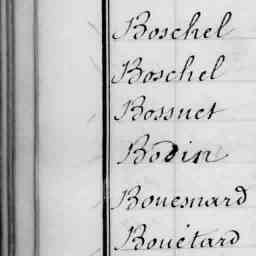 Boschel
Boschel
Bossuet
Bodin
Bouesnard
Bouétard